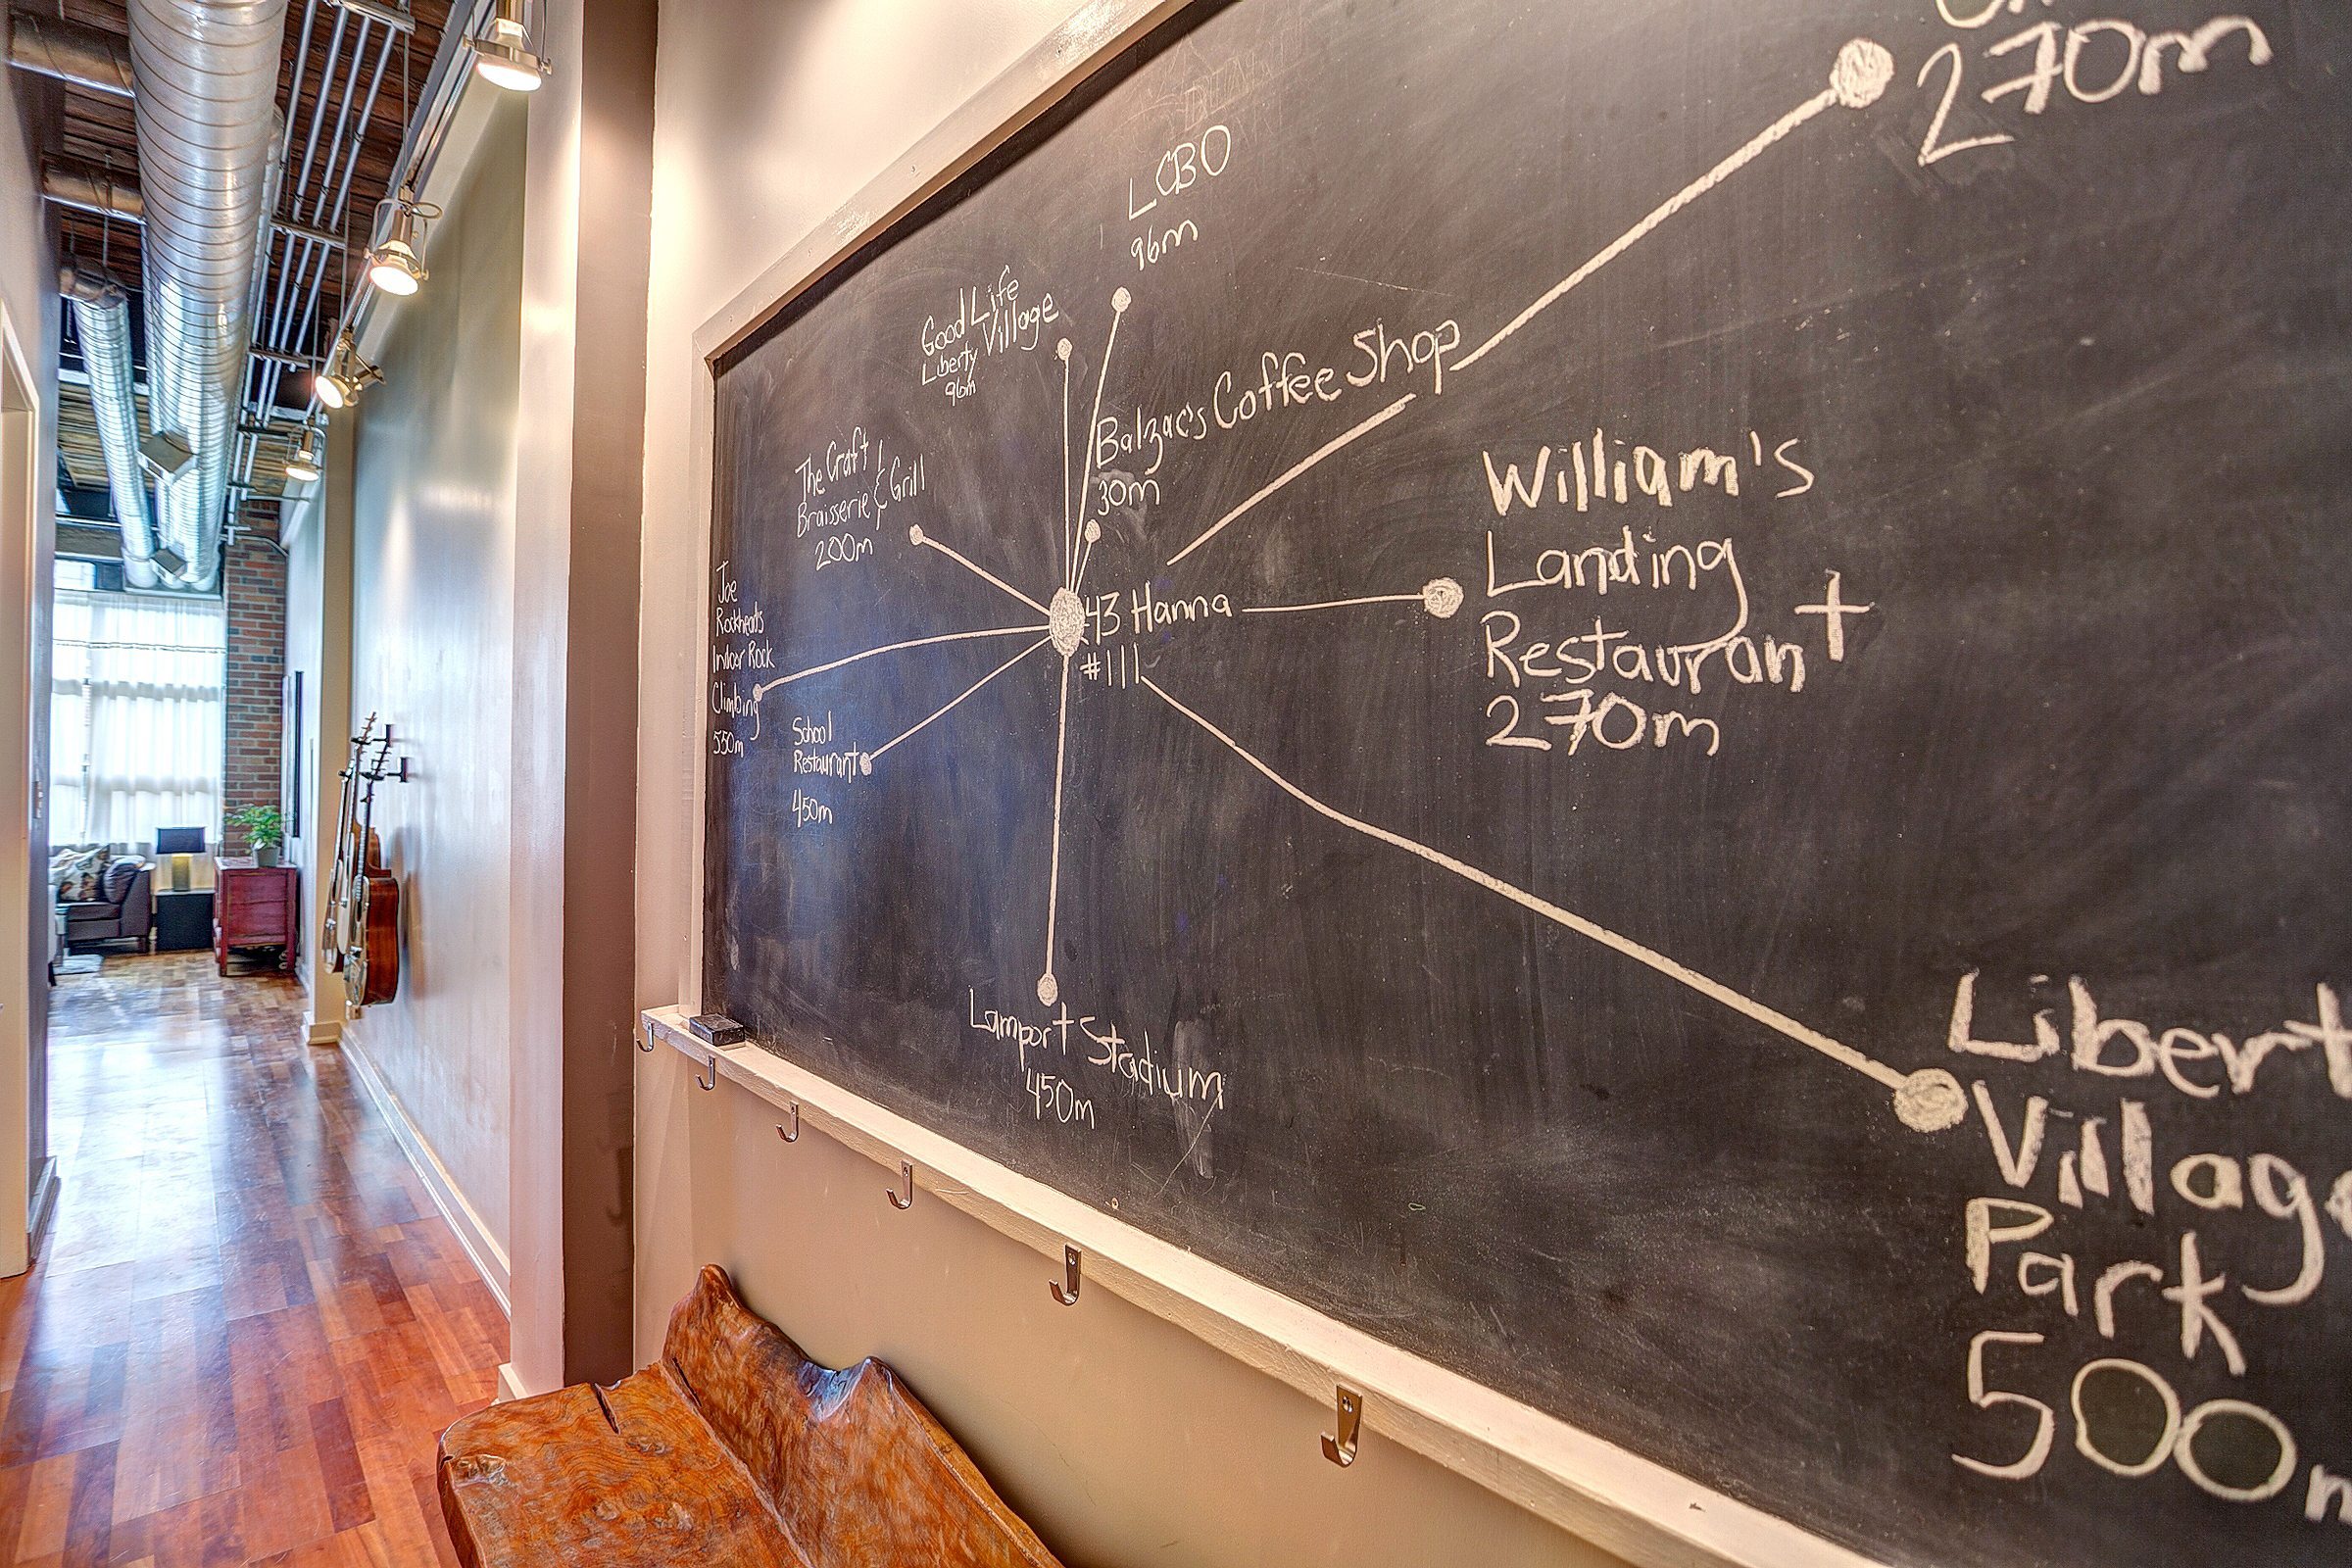 LCBO
96m
Good Life
Liberty Village
96m
270m
Balzac's Coffee Shop
30m
The Craft
Braisserie & Grill
200m
William's
Landing
Restaurant
270m
43 Hanna
#111
Joe
Rockheads
Indoor Rock
Climbing
550m
School
Restaurant
450m
Lamport Stadium
450m
Libert
Village
Park
500m